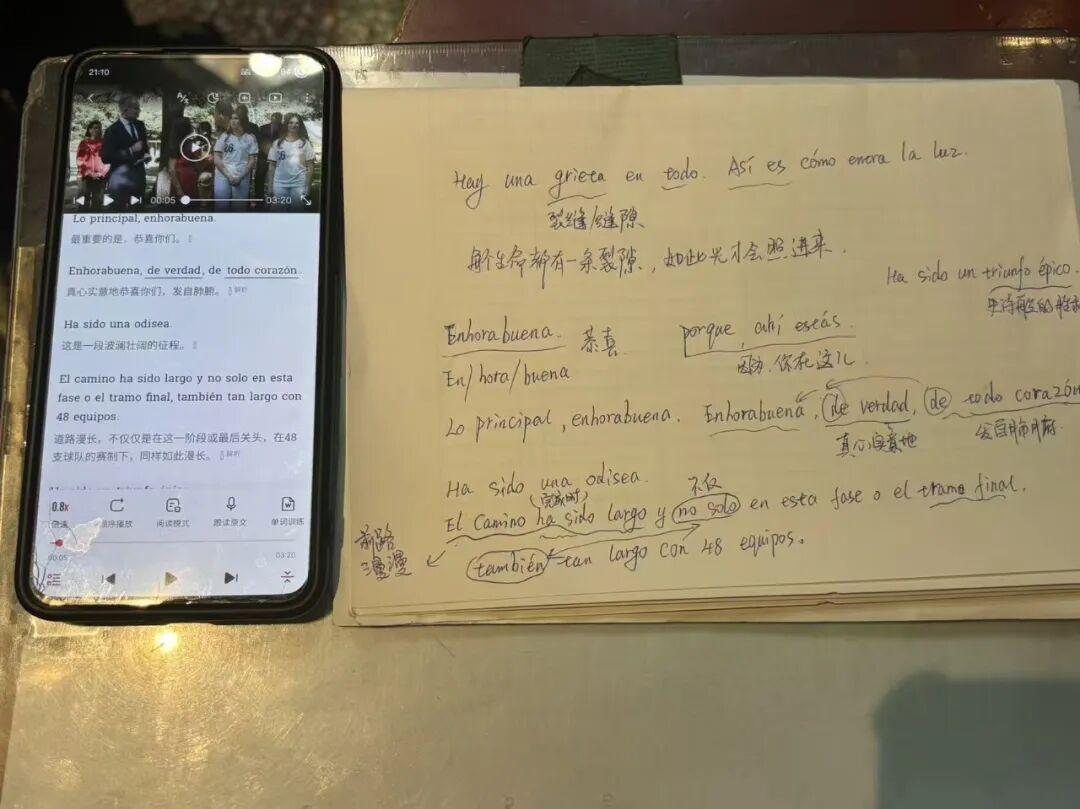 21:10
Lo principal, enhorabuena.
最重要的是，恭喜你们。
Enhorabuena, de verdad, de todo corazón.
真心实意地恭喜你们，发自肺腑。 解析
Ha sido una odisea.
这是一段波澜壮阔的征程。
El camino ha sido largo y no solo en esta
fase o el tramo final, también tan largo con
48 equipos.
道路漫长，不仅仅是在这一阶段或最后关头，在48
支球队的赛制下，同样如此漫长。 解析
00:05 03:20
0.8x
倍速 顺序播放 阅读模式 跟读原文 单词训练
00:05 03:20
Hay una grieta en todo. Así es cómo enera la luz.
裂缝/缝隙
每个生命都有一条裂隙，如此光才会照进来.
Ha sido un triunfo épico.
史诗般的胜利
Enhorabuena. 恭喜 porque, ahí estás.
因为，你在这儿.
En/hora/buena
Lo principal, enhorabuena. Enhorabuena, de verdad, de todo corazón
真心实意地 发自肺腑.
Ha sido una odisea.
(完成时) 不仅
El Camino ha sido largo y no solo en esta fase o el tramo final,
前路漫漫
también tan largo con 48 equipos.